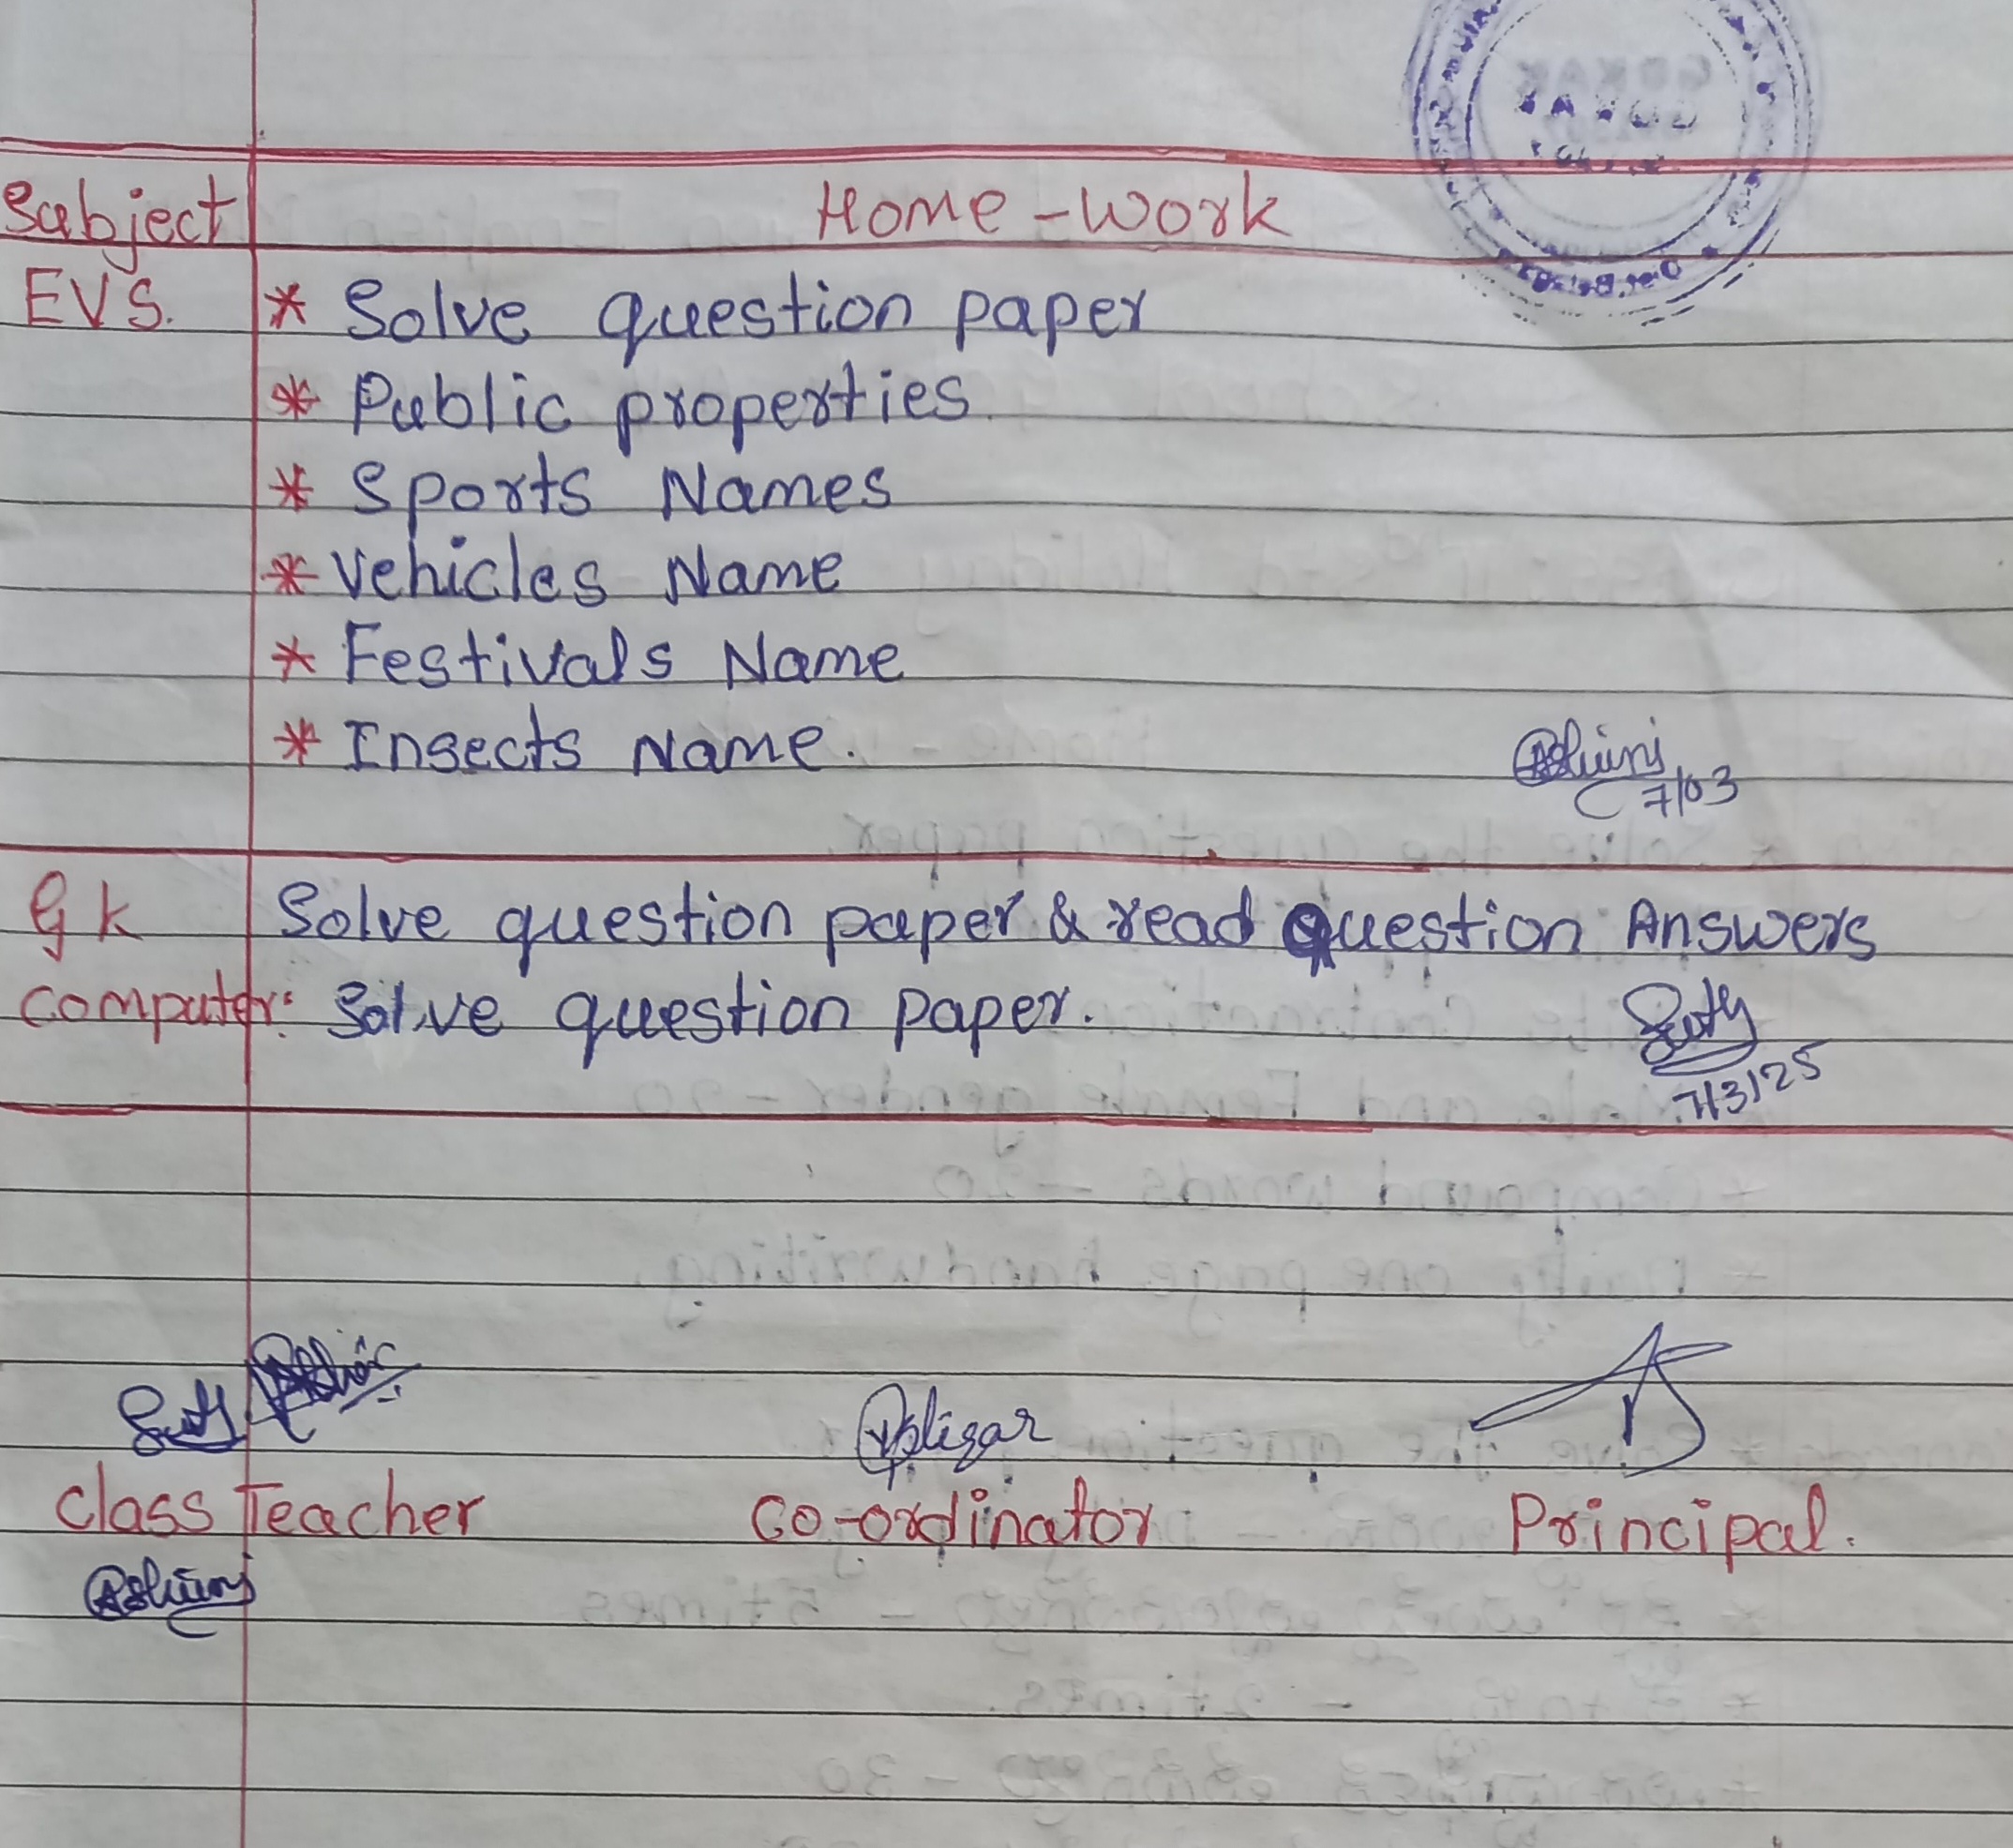 Subject Home-Work
EVS. * Solve question paper
* Public properties.
* Sports Names
* Vehicles Name
* Festivals Name
* Insects Name.
Ashwini
7/03
Gk Solve question paper & read question Answers
Computer: Solve question paper.
7/3/25
Class Teacher Co-ordinator Principal.
Ashwini